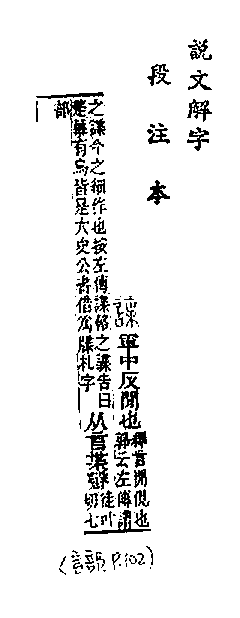 說文解字
段注本
諜 軍中反閒也 釋言閒俔也
郭云左傳謂
之諜今之細作也按左傳諜輅之諜告曰
楚幕有烏皆是大史公書借爲牒札字
从言枼聲 徒叶
切七
部
(言部 P.102)